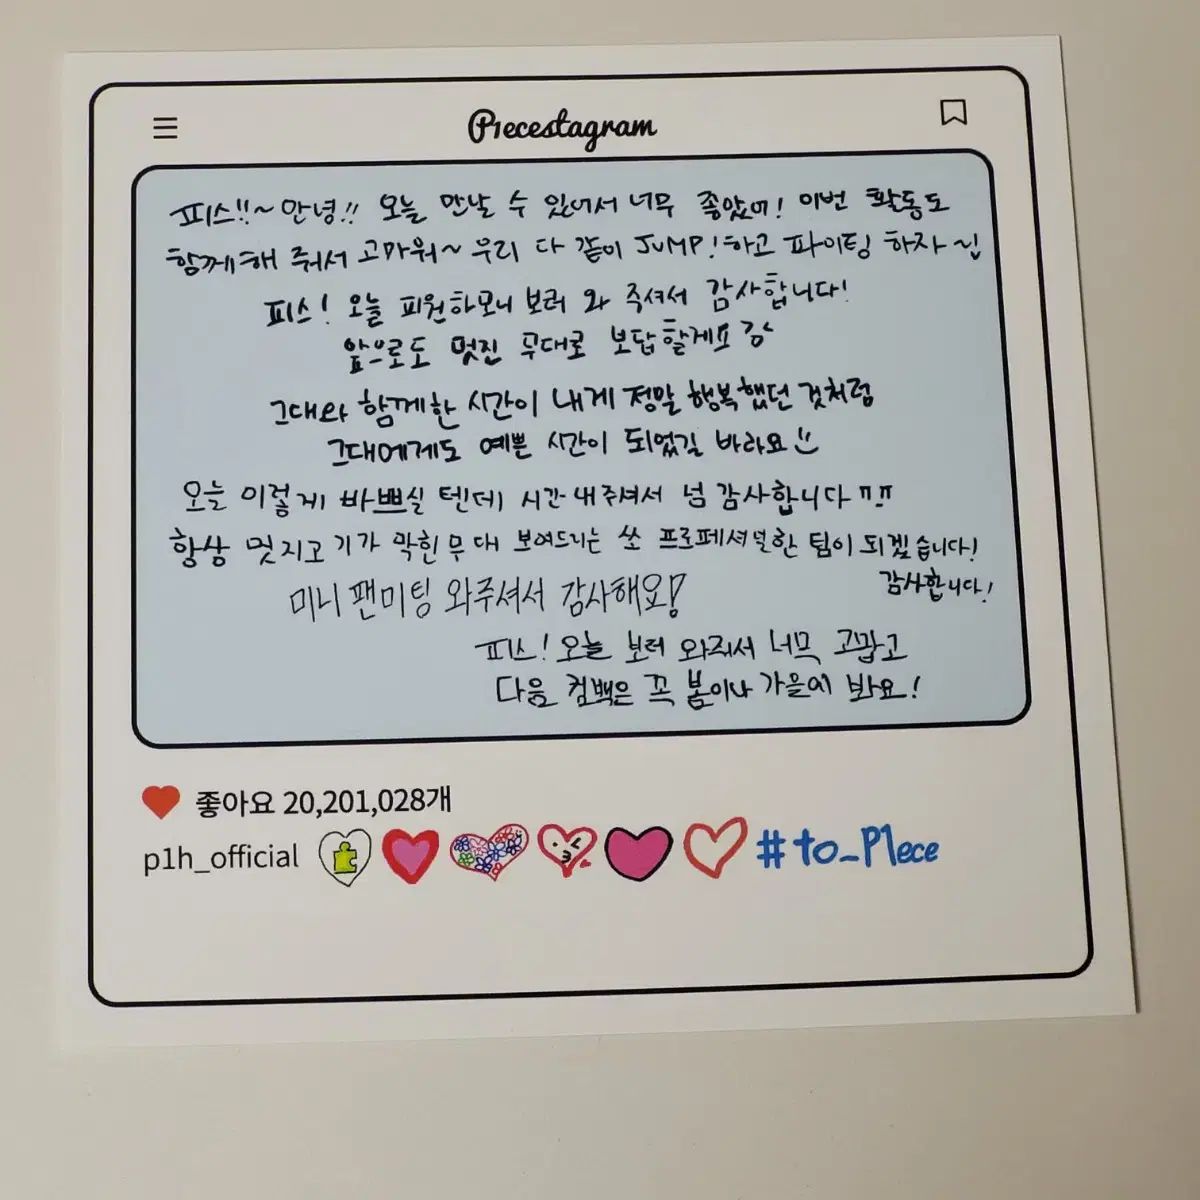 P1ecestagram
피스!!~안녕!! 오늘 만날 수 있어서 너무 좋았어! 이번 활동도
함께해 줘서 고마워~ 우리 다 같이 JUMP!하고 파이팅 하자~!!
피스! 오늘 피원하모니 보러 와 주셔서 감사합니다!
앞으로도 멋진 무대로 보답할게요
그대와 함께한 시간이 내게 정말 행복했던 것처럼
그대에게도 예쁜 시간이 되었길 바라요
오늘 이렇게 바쁘실 텐데 시간내주셔서 넘 감사합니다ㅠㅠ
항상 멋지고 기가 막힌 무대 보여드리는 쏘 프로페셔널한 팀이 되겠습니다!
감사합니다!
미니 팬미팅 와주셔서 감사해요!
피스! 오늘 보러 와줘서 너무 고맙고
다음 컴백은 꼭 봄이나 가을에 봐요!
좋아요 20,201,028개
p1h_official #to_P1ece